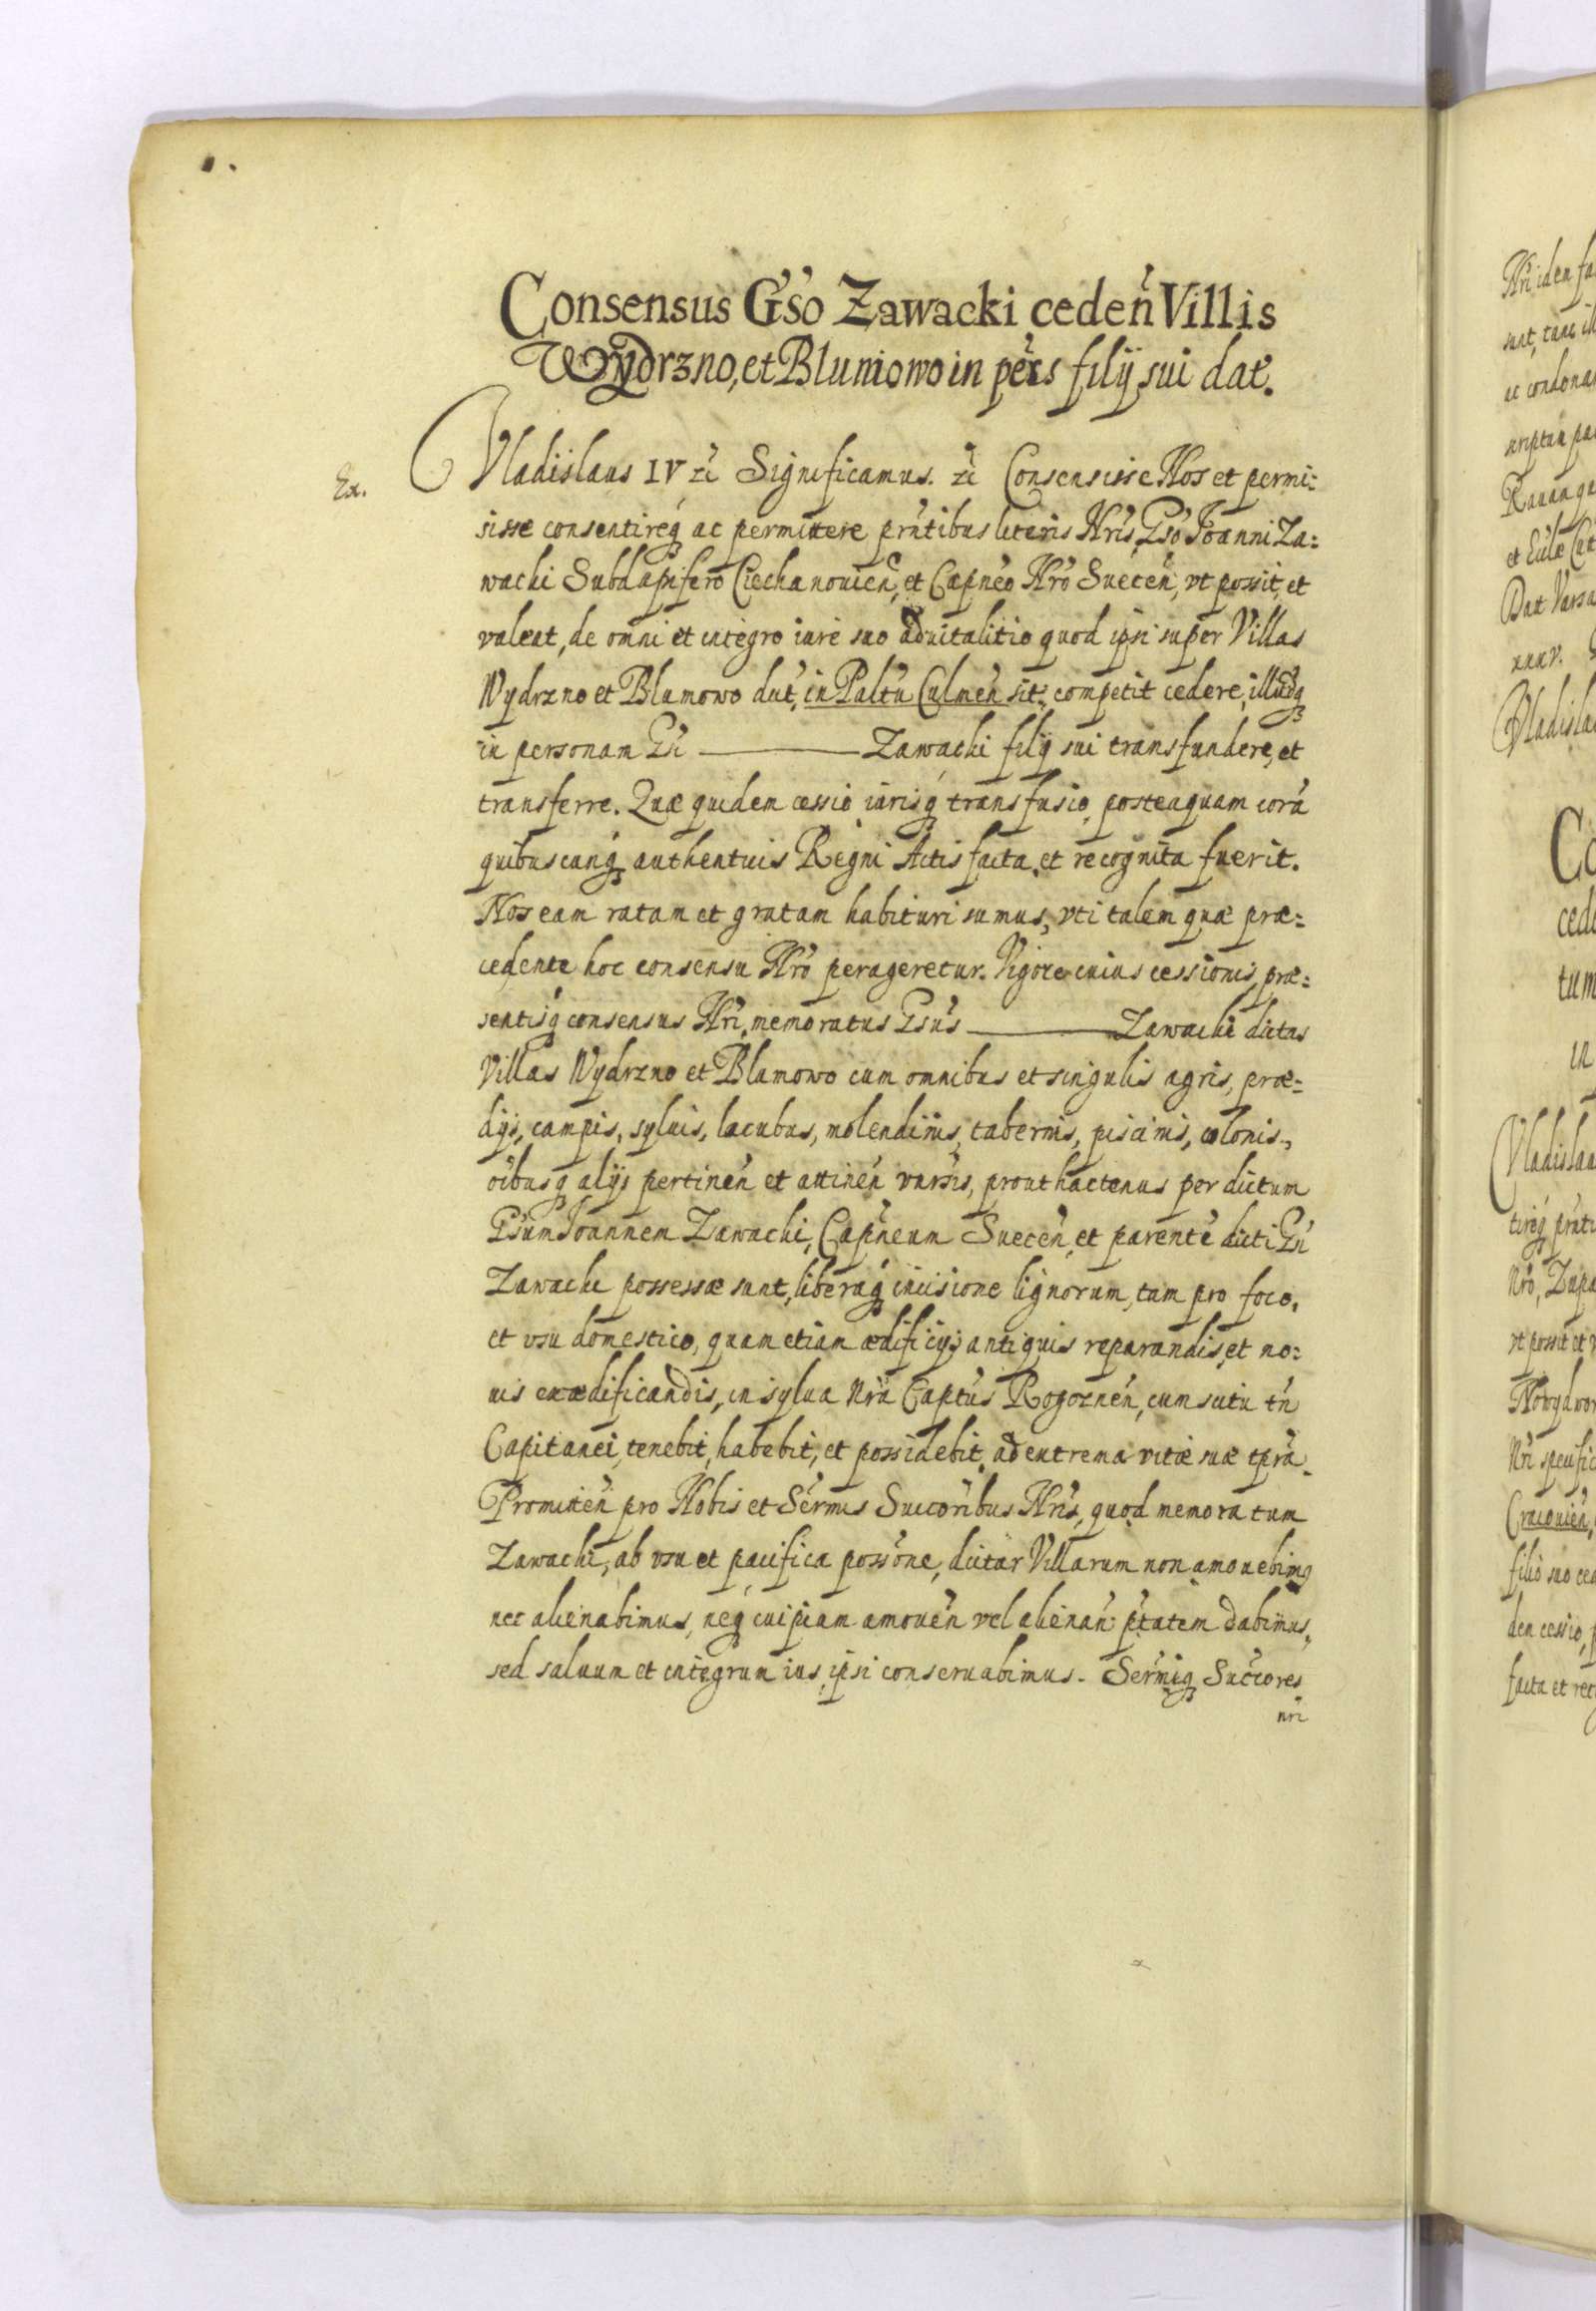 Consensus G'so Zawacki ceden̄ Villis
Wydrzno, et Blumowo in pers filij sui dat.
Ex.
Vladislaus IV zc̄ Significamus. zc̄ Consensisse Nos et permi:
sisse consentireq́ ac permittere prn̄tibus literis Nris, Gso Joanni Za:
wacki Subdapifero Ciechanouien̄, et Capneo Nro Suecen̄, vt possit, et
valeat, de omni et integro iure suo aduitalitio quod ipsi super Villas
Wydrzno et Blumowo dut, in Paltu Culmen̄ sit: competit cedere, illudq́
in personam Gsi ——— Zawacki filij sui transfundere, et
transferre. Quæ quidem cessio iurisq́ transfusio, posteaquam corā
quibuscunq́ authenticis Regni Actis facta, et recognita fuerit.
Nos eam ratam et gratam habituri sumus, vti talem quæ præ:
cedente hoc consensu Nro perageretur. Vigore cuius cessionis, præ:
sentisq́ consensus Nri, memoratus Gsus ——— Zawacki dictas
Villas Wydrzno et Blumowo cum omnibus et singulis agris, præ:
dijs, campis, syluis, lacubus, molendinis, tabernis, piscinis, colonis,
oībusq́ alijs pertinen̄ et attinen̄ vnrsis, prout hactenus per dictum
Gsum Joannem Zawacki, Capneum Suecen̄, et parentē dicti Gsi
Zawacki possessæ sunt, liberaq́ incisione lignorum, tam pro foco,
et vsu domestico, quam etiam ædificijs antiquis reparandis, et no:
uis exædificandis, in sylua Nrā Captus Rogoznen̄, cum scitu tn̄
Capitanei, tenebit, habebit, et possidebit, ad extrema vitæ suæ tp̄ra.
Promitten̄ pro Nobis et Sermis Succoribus Nris, quod memoratum
Zawacki, ab vsu et pacifica possone, dictar Villarum non amouebimꝰ
nec alienabimus, neq́ cuipiam amouen̄ vel alienan̄ ptatem dabimus,
sed saluum et integrum ius, ipsi conseruabimus. Sermiq́ Succores
nri